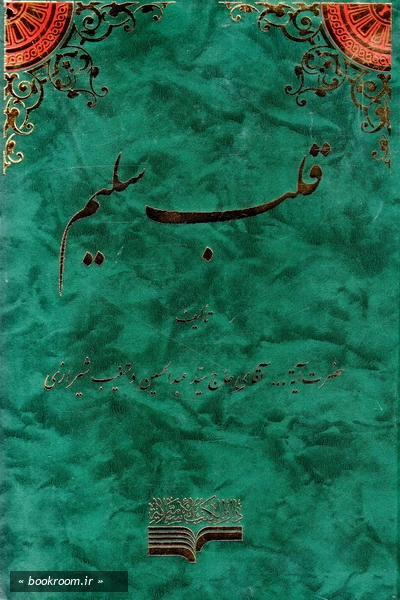 قلب سلیم
تألیف
حضرت آیة ... آقای حاج سید عبدالحسین دستغیب شیرازی
دارالکتب الاسلامیة
« bookroom.ir »